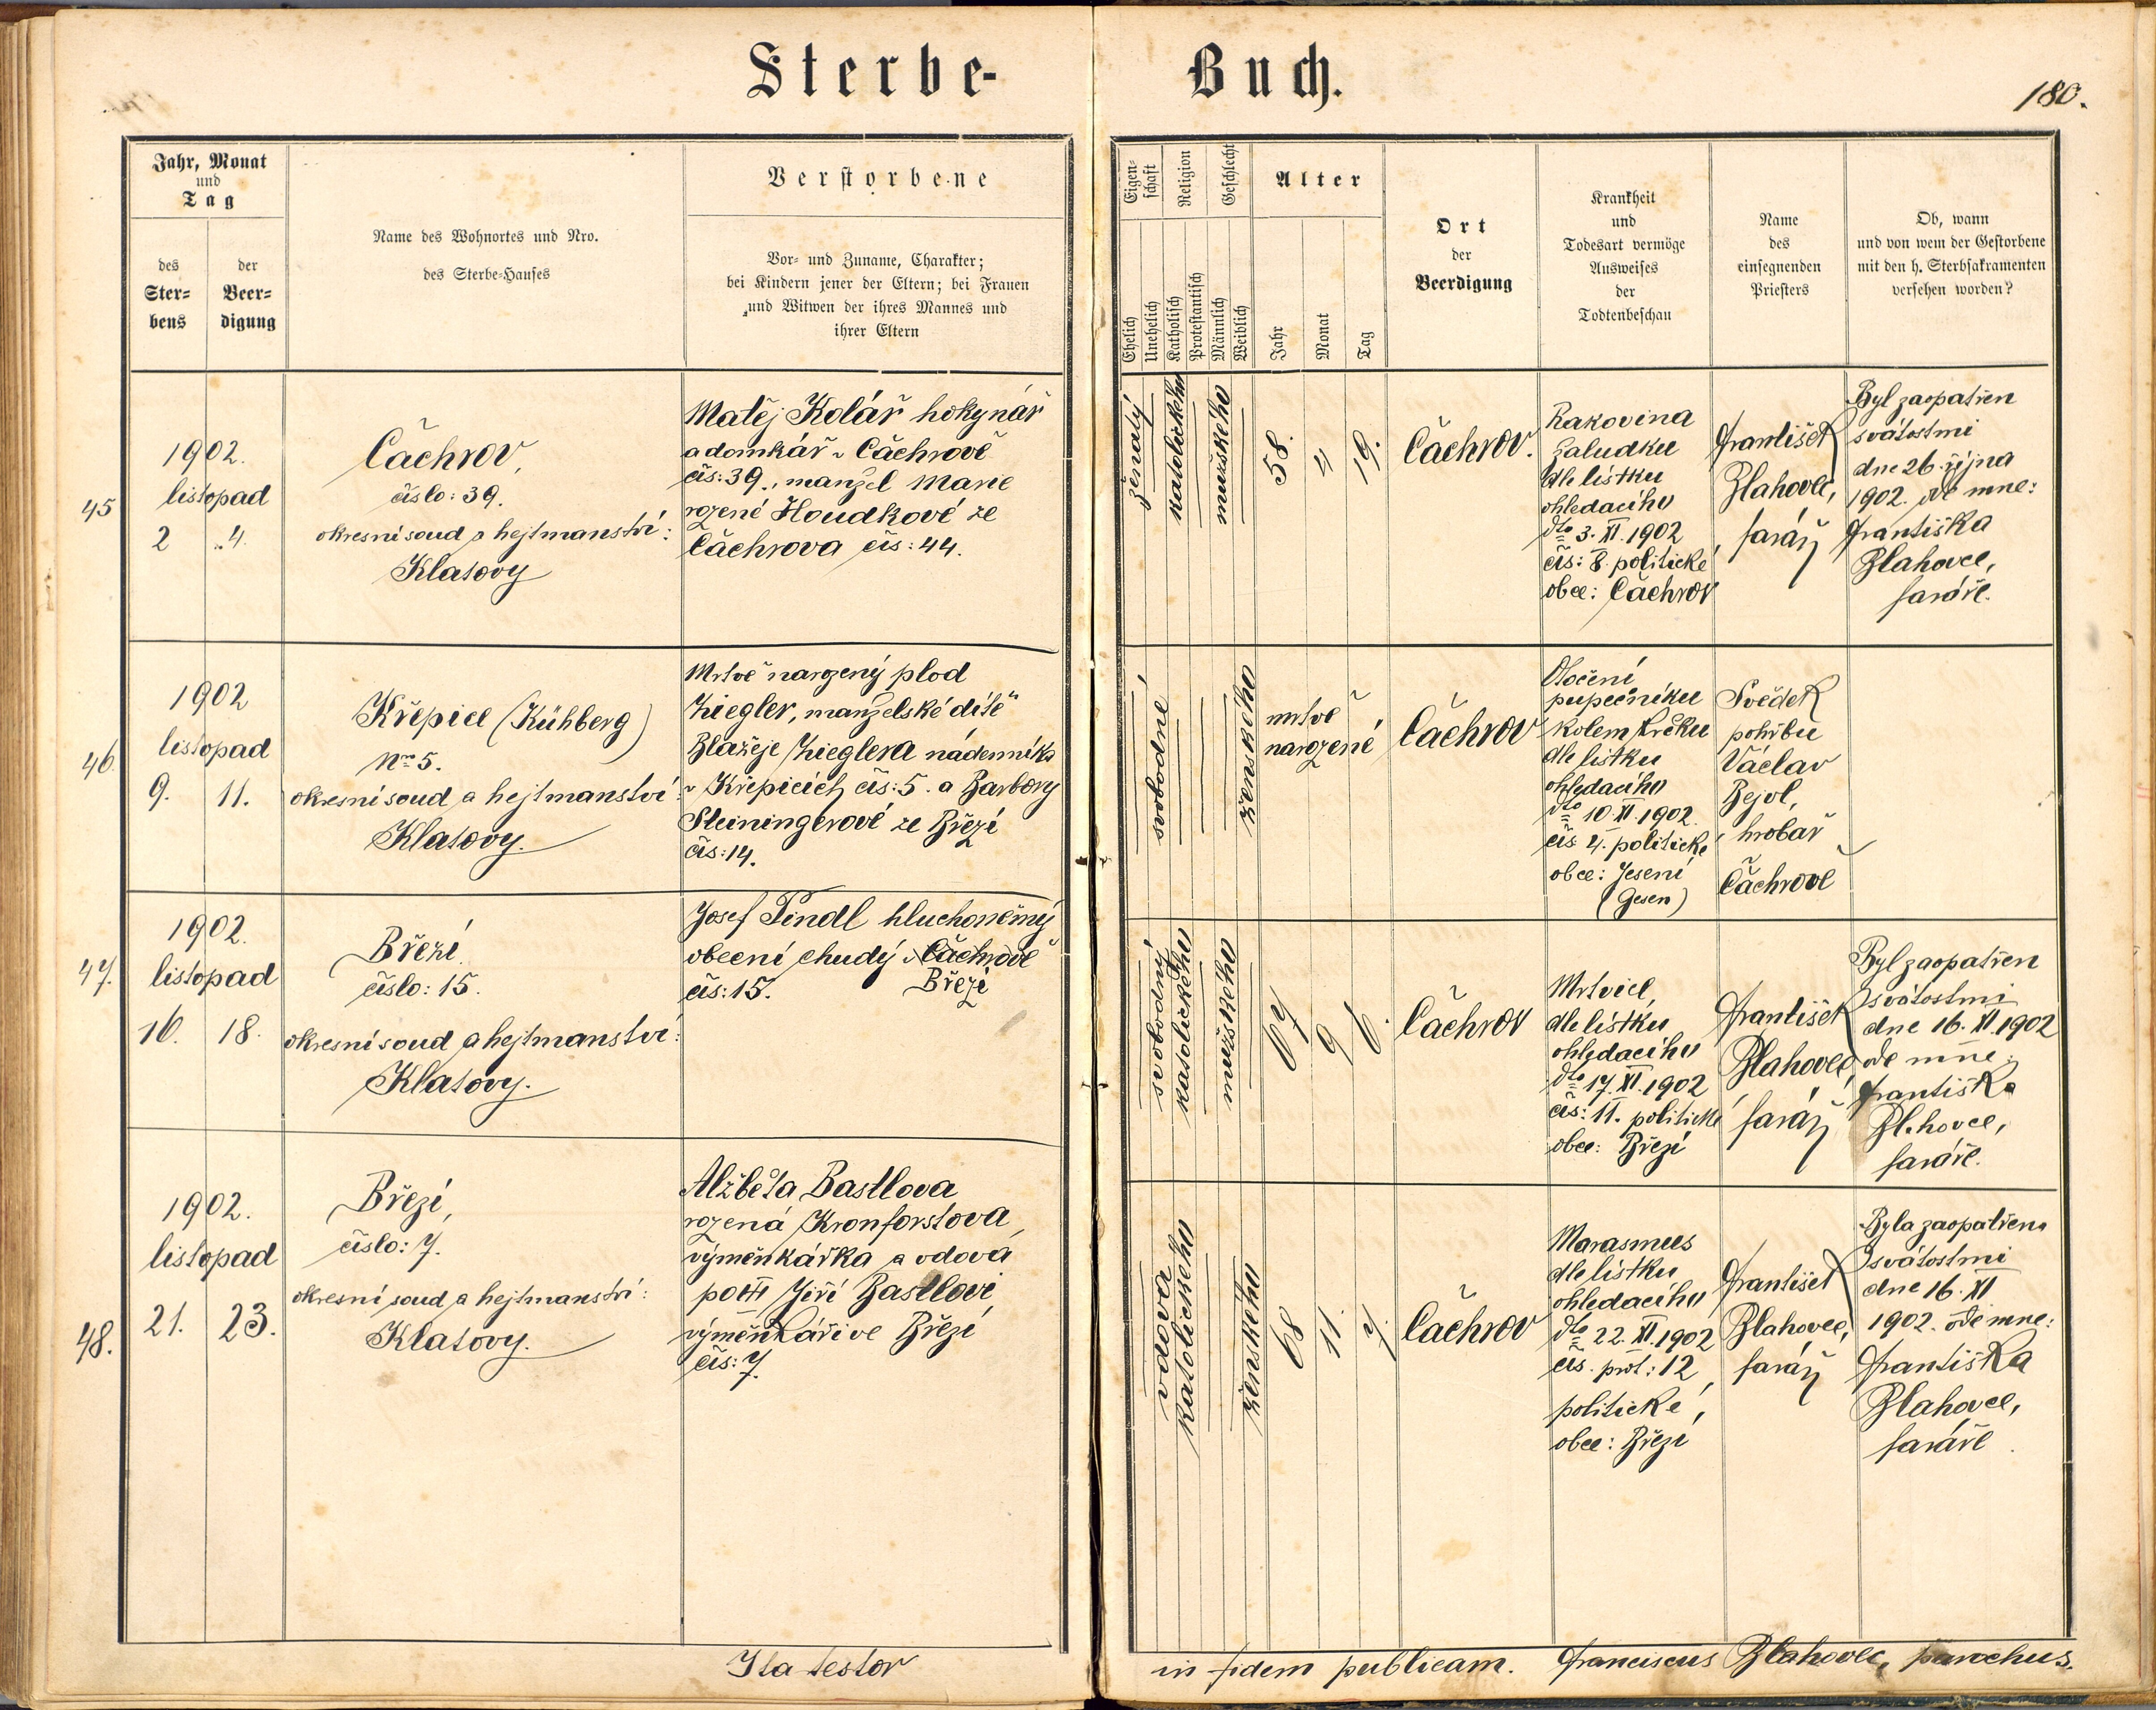 Sterbe-
Buch.
180.
Jahr, Monat
und
Tag
des
Ster=
bens
der
Beer=
digung
Name des Wohnortes und Nro.
des Sterbe=Hauses
Verstorbene
Vor= und Zuname, Charakter;
bei Kindern jener der Eltern; bei Frauen
und Witwen der ihres Mannes und
ihrer Eltern
Eigen=
schaft
Religion
Geschlecht
Ehelich
Unehelich
Katholisch
Protestantisch
Männlich
Weiblich
Alter
Jahr
Monat
Tag
Ort
der
Beerdigung
Krankheit
und
Todesart vermöge
Ausweises
der
Todtenbeschau
Name
des
einsegnenden
Priesters
Ob, wann
und von wem der Gestorbene
mit den h. Sterbsakramenten
versehen worden?
45
1902.
listopad
2 4.
Čachrov,
číslo: 39.
okresní soud a hejtmanství:
Klatovy
Matěj Kolář hokynář
a domkář v Čachrově
čís: 39., manžel Marie
rozené Houdkové ze
Čachrova čís: 44.
ženatý
katolického
mužského
58.
4
19.
Čachrov.
Rakovina
žaludku
dle lístku
ohledacího
dto 3. XI. 1902
čís: 8. politické
obce: Čachrov
František
Blahovec,
farář
Byl zaopatřen
svátostmi
dne 26. října
1902. ode mne:
Františka
Blahovce,
faráře.
46.
1902
listopad
9. 11.
Křepice (Kühberg)
Nro 5.
okresní soud a hejtmanství:
Klatovy.
Mrtvě narozený plod
Ziegler, manželské dítě
Blažeje Zieglera nádenníka
v Křepicích čís: 5. a Barbory
Steiningerové ze Březí
čís: 14.
svobodné
ženského
mrtvě
narozené
Čachrov
Otočení
pupečníku
kolem krčku
dle lístku
ohledacího
dto 10. XI. 1902.
čís. 4. politické
obce: Jesení
(Gesen)
Svědek
pohřbu
Václav
Bejvl,
hrobař
v
Čachrově
47.
1902.
listopad
16. 18.
Březí.
číslo: 15.
okresní soud a hejtmanství:
Klatovy.
Josef Pindl hluchoněmý
obecní chudý v Čachrově
čís: 15. Březí
svobodný
katolického
mužského
67
9
6.
Čachrov
Mrtvice,
dle lístku
ohledacího
dto 17. XI. 1902
čís: 11. politické
obce: Březí
František
Blahovec,
farář
Byl zaopatřen
svátostmi
dne 16. XI. 1902
ode mne:
Františka
Blahovce,
faráře.
48.
1902.
listopad
21. 23.
Březí,
číslo: 7.
okresní soud a hejtmanství:
Klatovy.
Alžběta Bastlova
rozená Kronforstova,
výměnkářka a vdova
po Jiří Bastlovi
výměnkáři ve Březí
čís: 7.
vdova
katolického
ženského
68
11.
7.
Čachrov
Marasmus
dle lístku
ohledacího
dto 22. XI. 1902
čís. prot: 12
politické,
obce: Březí
František
Blahovec,
farář
Byla zaopatřena
svátostmi
dne 16. XI
1902. ode mne:
Františka
Blahovce,
faráře.
Ita testor
in fidem publicam. Franciscus Blahovec, parochus.